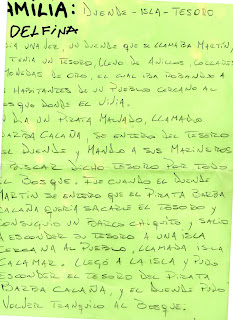 AMILIA: DUENDE-ISLA-TESORO
DELFINA
ÍA UNA VEZ, UN DUENDE QUE SE LLAMABA MARTÍN,
TENIA UN TESORO, LLENO DE ANILLOS, COLLARES
MONEDAS DE ORO, EL CUAL IBA ROBANDO A
HABITANTES DE UN PUEBLO CERCANO AL
BOSQUE DONDE EL VIVIA.
N DIA UN PIRATA MALVADO, LLAMADO
BARBA CALAÑA, SE ENTERO DEL TESORO
EL DUENDE, Y MANDO A SUS MARINEROS
BUSCAR DICHO TESORO POR TODO
EL BOSQUE. FUE CUANDO EL DUENDE
MARTIN SE ENTERO QUE EL PIRATA BARBA
CALAÑA QUERÍA SACARLE EL TESORO Y
CONSIGUIO UN BARCO CHIQUITO, SALIO
A ESCONDER SU TESORO A UNA ISLA
CERCANA AL PUEBLO, LLAMADA ISLA
CALAMAR. LLEGÓ A LA ISLA Y PUDO
ESCONDER EL TESORO DEL PIRATA
BARBA CALAÑA, Y EL DUENDE PUDO
VOLVER TRANQUILO AL BOSQUE.